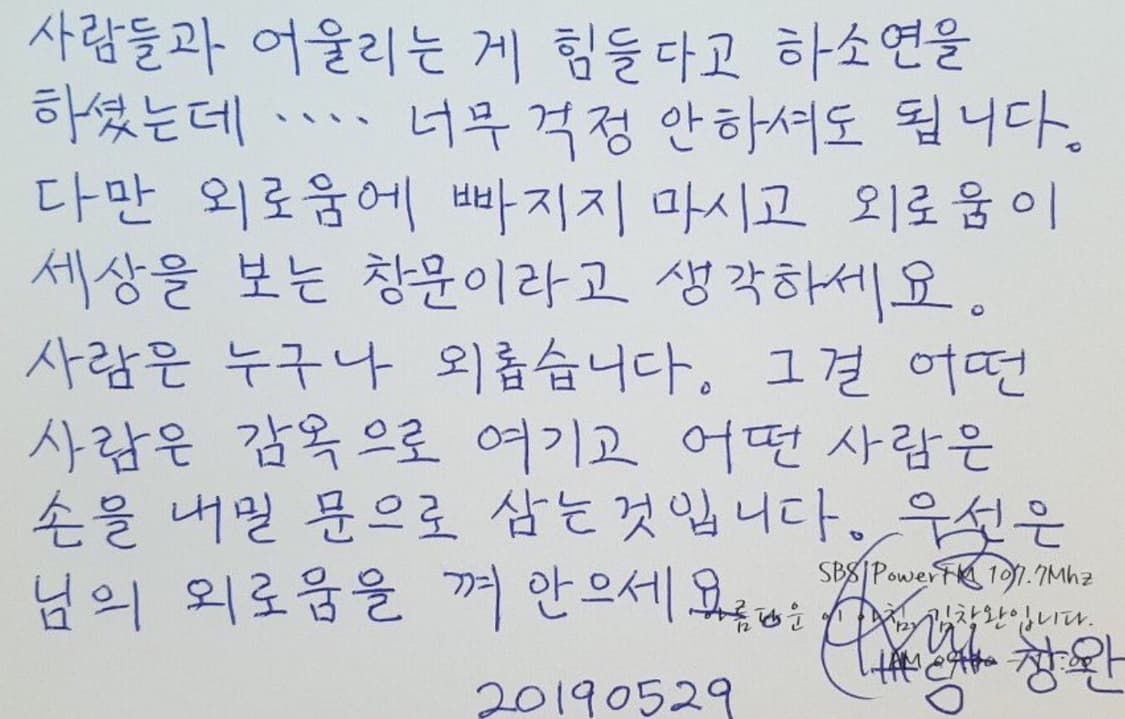 사람들과 어울리는 게 힘들다고 하소연을
하셨는데 ···· 너무 걱정 안하셔도 됩니다.
다만 외로움에 빠지지 마시고 외로움이
세상을 보는 창문이라고 생각하세요.
사람은 누구나 외롭습니다. 그걸 어떤
사람은 감옥으로 여기고 어떤 사람은
손을 내밀 문으로 삼는것입니다. 우선은
님의 외로움을 껴안으세요
SBS PowerFM 107.7Mhz
아름다운 이 아침, 김창완입니다.
AM
창완
20190529